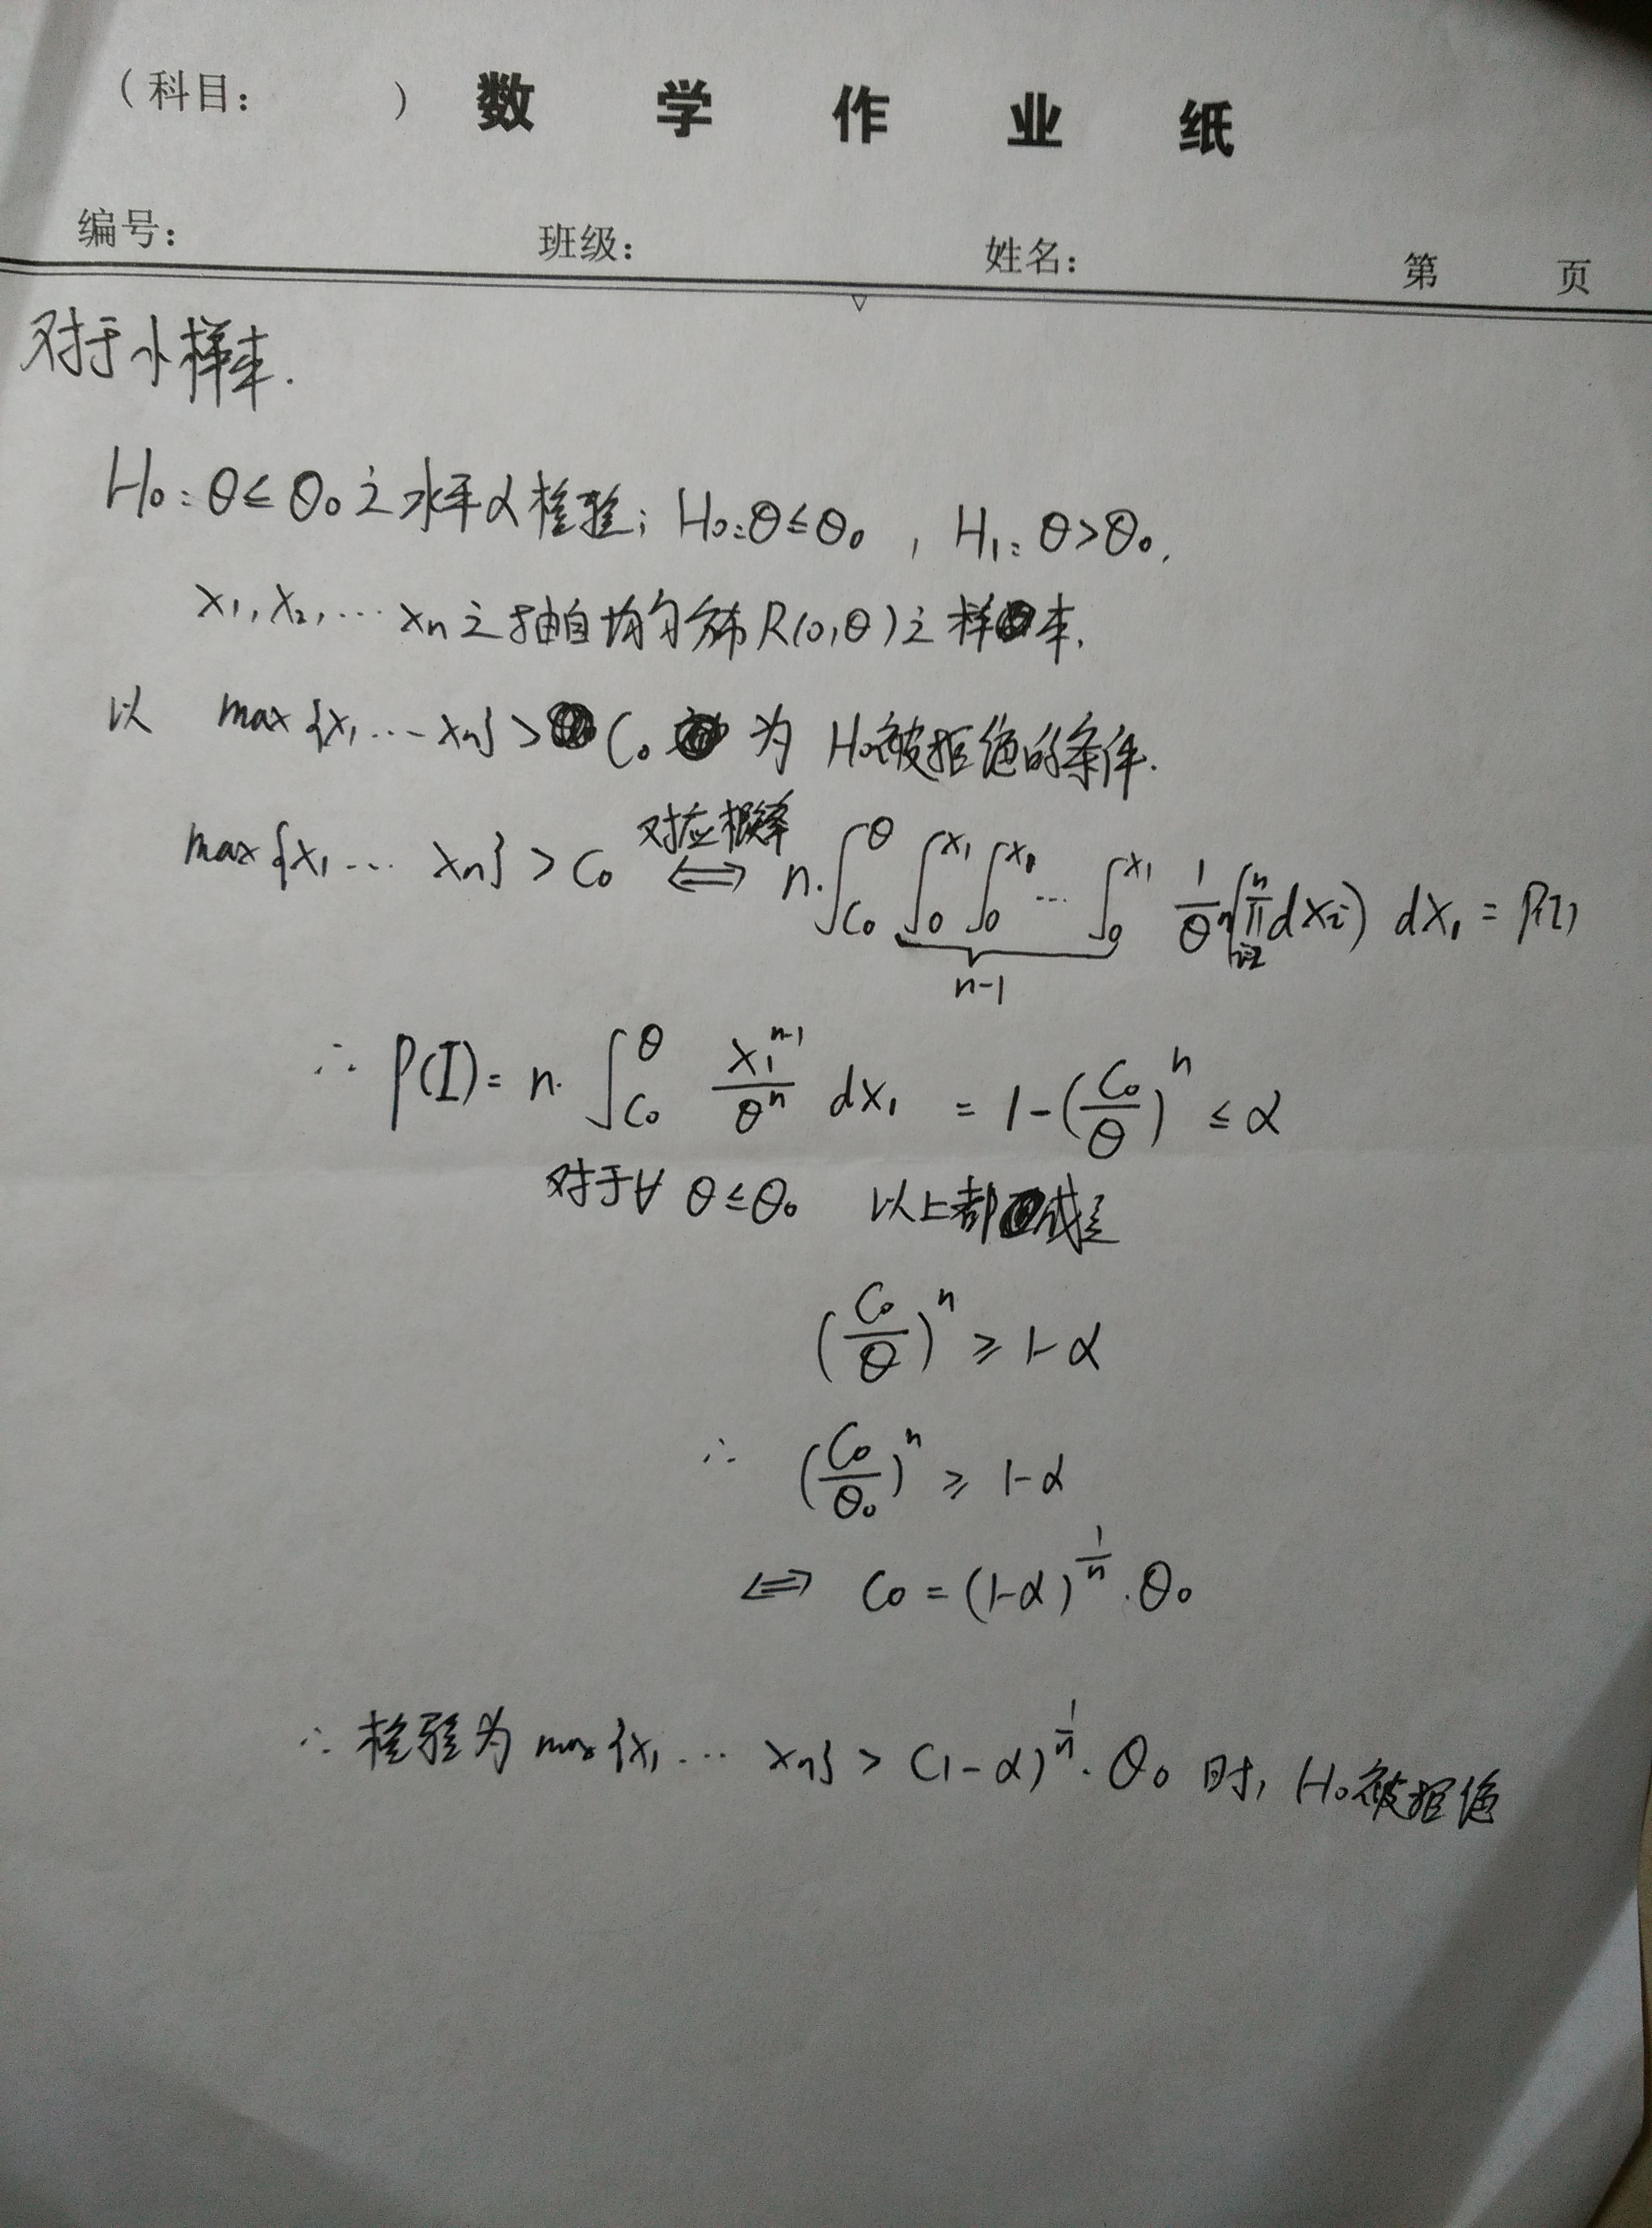 （科目：　　　）数学作业纸
编号：　　　班级：　　　姓名：　　　第　　页
对于小样本.
H₀: θ≤θ₀之水平α检验; H₀:θ≤θ₀ , H₁: θ>θ₀.
x₁,x₂,…xₙ之抽自均匀分布R(0,θ)之样本.
以 max{x₁…xₙ}>C₀ 为 H₀被拒绝的条件.
对应概率
max{x₁… xₙ}>C₀ ⟺ n·∫_{C₀}^{θ} ∫_0^{x₁} ∫_0^{x₁} … ∫_0^{x₁} 1/θⁿ (∏_{i=2}^{n} dxᵢ) dx₁ = P(I)
n-1
∴ P(I)= n·∫_{C₀}^{θ} x₁^{n-1}/θⁿ dx₁ = 1-(C₀/θ)ⁿ ≤ α
对于∀ θ≤θ₀ 以上都成立
(C₀/θ)ⁿ ≥ 1-α
∴ (C₀/θ₀)ⁿ ≥ 1-α
⟺ C₀=(1-α)^{1/n}·θ₀
∴检验为 max{x₁… xₙ} > (1-α)^{1/n}·θ₀ 时, H₀被拒绝